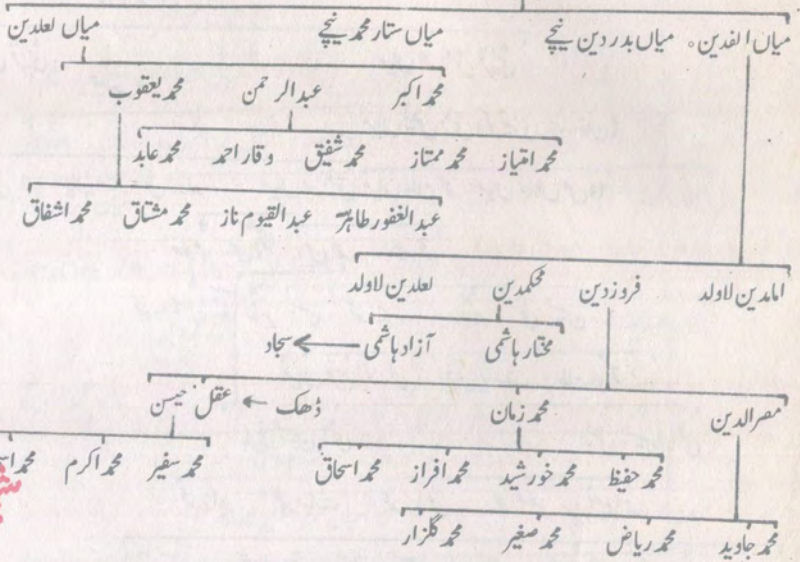 میاں الفدین میاں بدر دین نیچے میاں ستار محمد نیچے میاں لعلدین
محمد اکبر عبدالرحمن محمد یعقوب
محمد امتیاز محمد ممتاز محمد شفیق وقار احمد محمد عابد
عبدالغفور طاہر عبدالقیوم ناز محمد مشتاق محمد اشفاق
امامدین لاولد فروزدین محکمدین لعلدین لاولد
مختار ہاشمی آزاد ہاشمی سجاد
مصر الدین محمد زمان ڈھک عقل حسین
محمد حفیظ محمد خورشید محمد افراز محمد اسحاق محمد سفیر محمد اکرم
محمد جاوید محمد ریاض محمد صغیر محمد گلزار